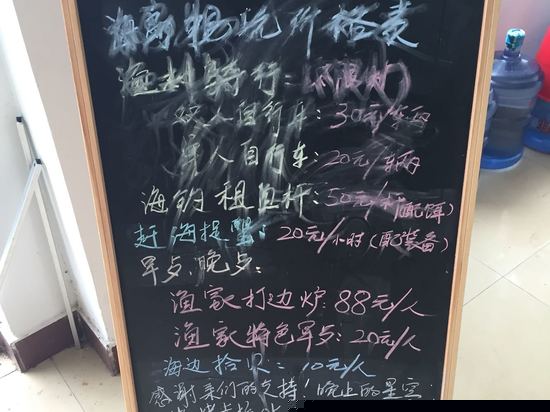 海岛玩价格表
渔村骑行：(不限时)
双人自行车：30元/车辆
单人自行车：20元/车辆
海钓租鱼杆：50元/杆(配饵)
赶海捉蟹：20元/小时(配装备)
早点、晚点：
渔家打边炉：88元/人
渔家特色早点：20元/人
海边拾贝：10元/人
感谢亲们的支持！晚上的星空